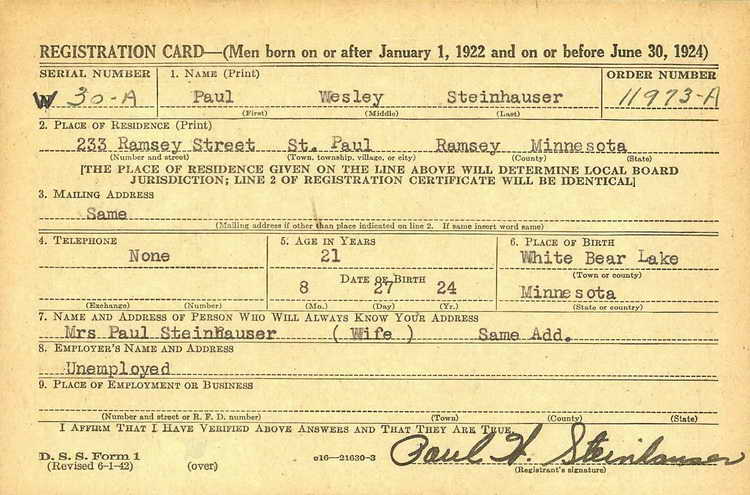 REGISTRATION CARD—(Men born on or after January 1, 1922 and on or before June 30, 1924)
SERIAL NUMBER 1. NAME (Print) ORDER NUMBER
W 30-A Paul Wesley Steinhauser 11973-A
(First) (Middle) (Last)
2. PLACE OF RESIDENCE (Print)
233 Ramsey Street St. Paul Ramsey Minnesota
(Number and street) (Town, township, village, or city) (County) (State)
[THE PLACE OF RESIDENCE GIVEN ON THE LINE ABOVE WILL DETERMINE LOCAL BOARD
JURISDICTION; LINE 2 OF REGISTRATION CERTIFICATE WILL BE IDENTICAL]
3. MAILING ADDRESS
Same
(Mailing address if other than place indicated on line 2. If same insert word same)
4. TELEPHONE 5. AGE IN YEARS 6. PLACE OF BIRTH
None 21 White Bear Lake
(Town or county)
DATE OF BIRTH
8 27 24 Minnesota
(Exchange) (Number) (Mo.) (Day) (Yr.) (State or country)
7. NAME AND ADDRESS OF PERSON WHO WILL ALWAYS KNOW YOUR ADDRESS
Mrs Paul Steinhauser ( Wife ) Same Add.
8. EMPLOYER'S NAME AND ADDRESS
Unemployed
9. PLACE OF EMPLOYMENT OR BUSINESS
(Number and street or R. F. D. number) (Town) (County) (State)
I AFFIRM THAT I HAVE VERIFIED ABOVE ANSWERS AND THAT THEY ARE TRUE.
D. S. S. Form 1
(Revised 6-1-42) (over) c16—21630-3 Paul W. Steinhauser
(Registrant's signature)